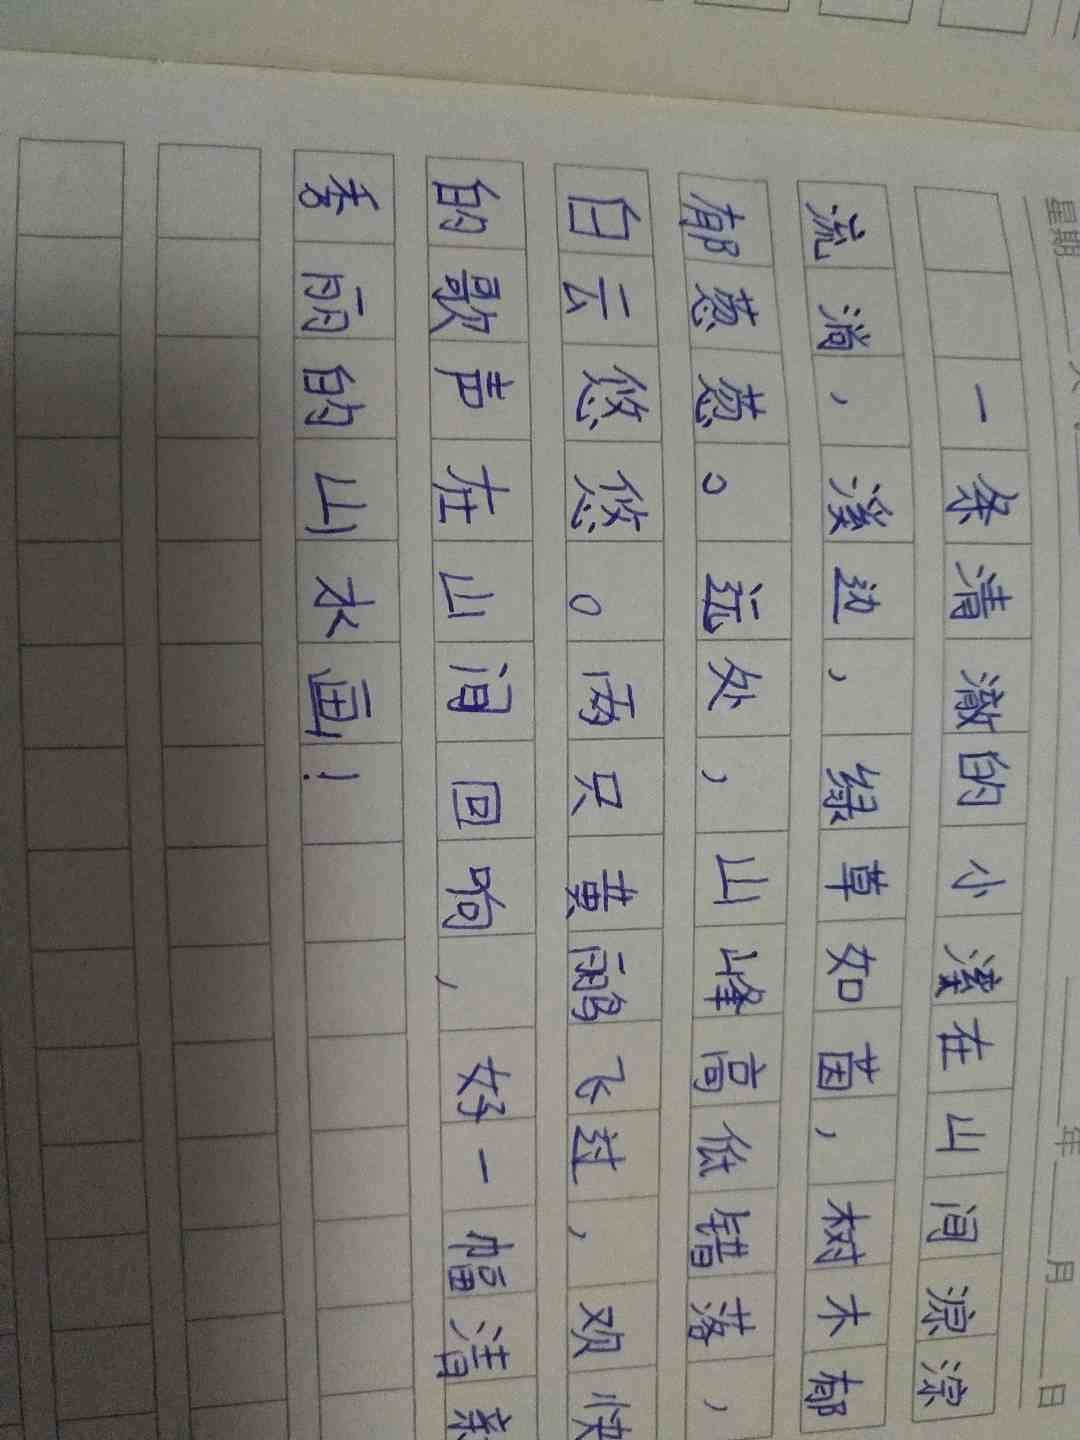 星期 天 年 月 日
一条清澈的小溪在山间淙淙
流淌，溪边，绿草如茵，树木郁
郁葱葱。远处，山峰高低错落，
白云悠悠。两只黄鹂飞过，欢快
的歌声在山间回响，好一幅清新
秀丽的山水画！